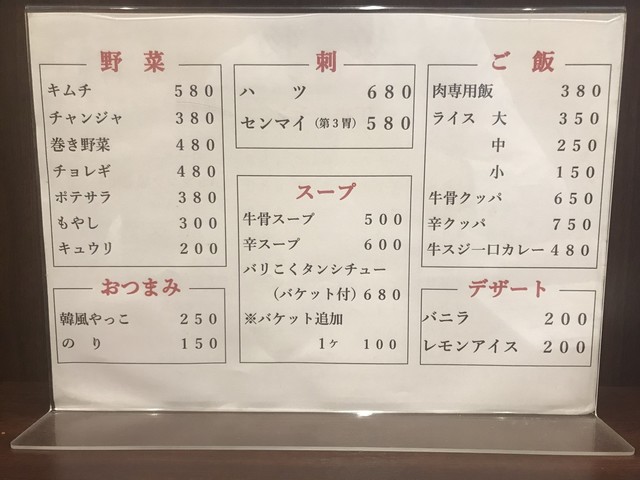 野菜
キムチ 580
チャンジャ 380
巻き野菜 480
チョレギ 480
ポテサラ 380
もやし 300
キュウリ 200
おつまみ
韓風やっこ 250
のり 150
刺
ハツ 680
センマイ(第3胃) 580
スープ
牛骨スープ 500
辛スープ 600
バリこくタンシチュー
(バケット付) 680
※バケット追加
1ヶ 100
ご飯
肉専用飯 380
ライス 大 350
中 250
小 150
牛骨クッパ 650
辛クッパ 750
牛スジ一口カレー 480
デザート
バニラ 200
レモンアイス 200